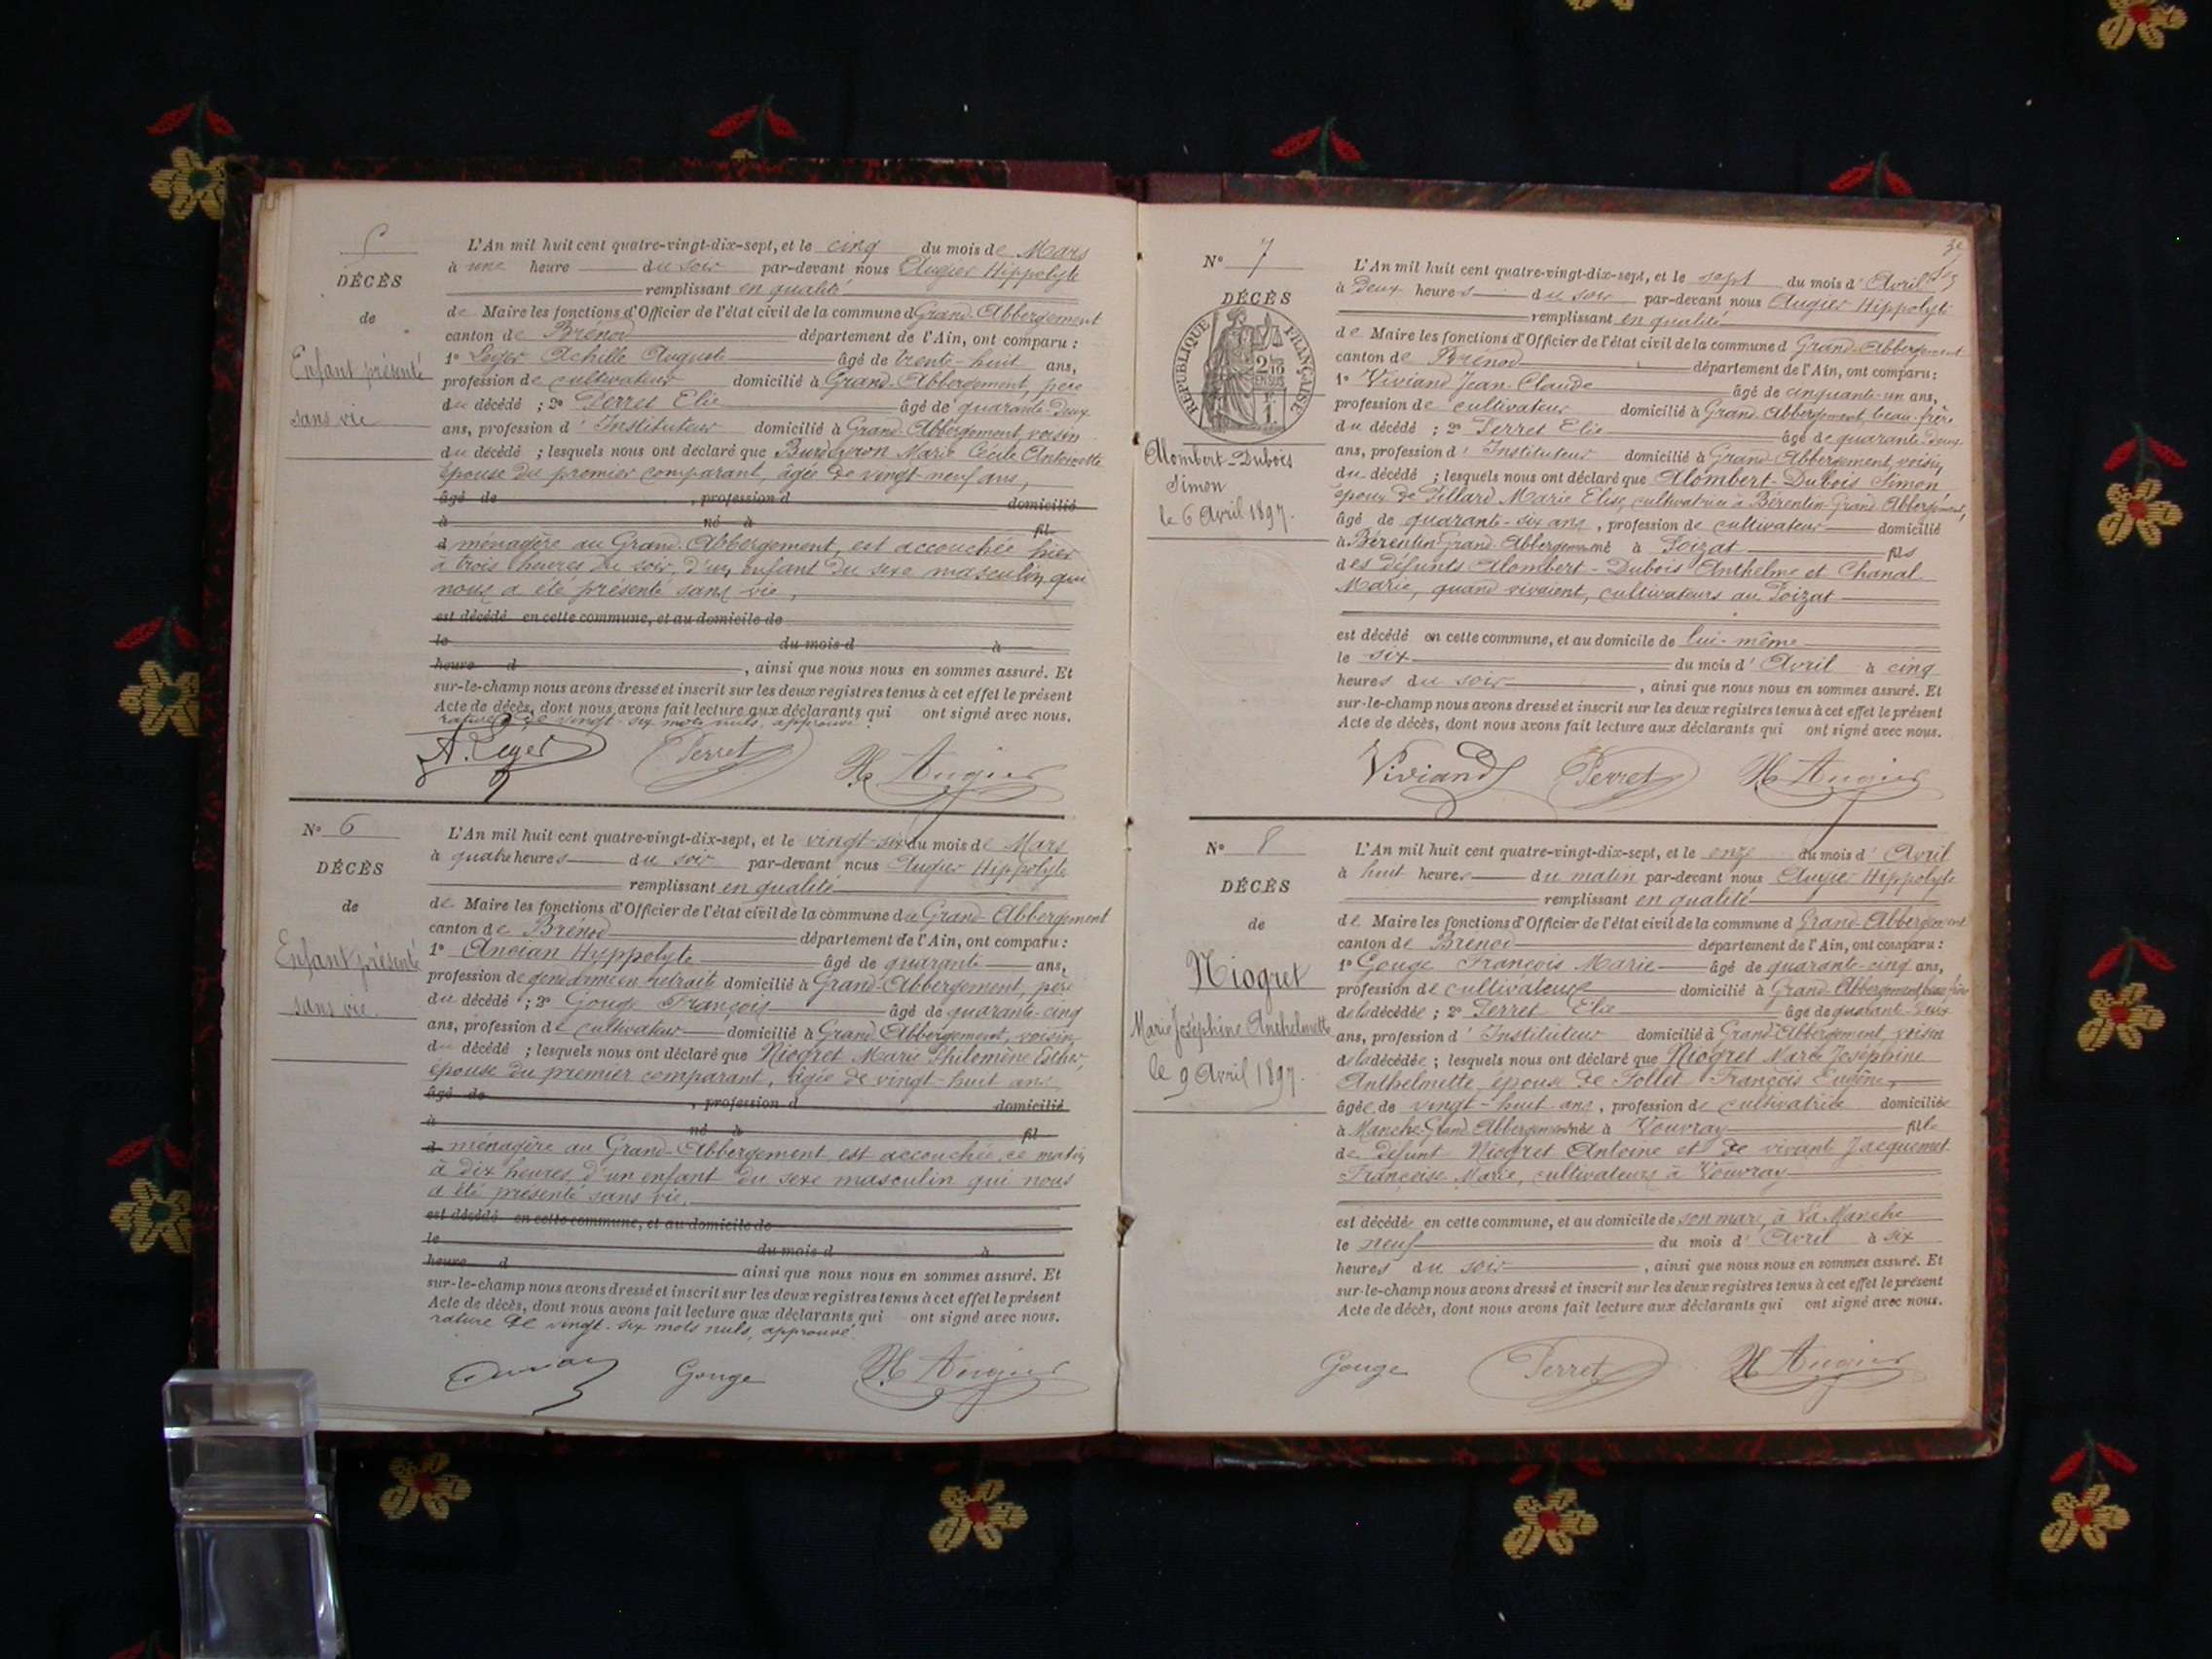 5
DÉCÈS
de
Enfant présenté
sans vie
L'An mil huit cent quatre-vingt-dix-sept, et le cinq du mois de Mars
à une heure du soir par-devant nous Augier Hippolyte
remplissant en qualité
de Maire les fonctions d'Officier de l'état civil de la commune d Grand-Abbergement
canton de Brénod département de l'Ain, ont comparu :
1° Léger Achille Auguste âgé de trente-huit ans,
profession de cultivateur domicilié à Grand-Abbergement, père
du décédé ; 2° Perret Elie âgé de quarante-deux
ans, profession d' Instituteur domicilié à Grand-Abbergement, voisin
du décédé ; lesquels nous ont déclaré que Marie Cécile Antoinette
épouse du premier comparant, âgée de vingt-neuf ans,
âgé de , profession d domicilié
à né à fil
d ménagère au Grand-Abbergement, est accouchée hier
à trois heures du soir, d'un enfant du sexe masculin qui
nous a été présenté sans vie,
est décédé en cette commune, et au domicile de
le du mois d à
heure d , ainsi que nous nous en sommes assuré. Et
sur-le-champ nous avons dressé et inscrit sur les deux registres tenus à cet effet le présent
Acte de décès, dont nous avons fait lecture aux déclarants qui ont signé avec nous.
rature de vingt-six mots nuls, approuvé.
A. Léger Perret H. Augier
N° 6
DÉCÈS
de
Enfant présenté
sans vie
L'An mil huit cent quatre-vingt-dix-sept, et le vingt-six du mois de Mars
à quatre heures du soir par-devant nous Augier Hippolyte
remplissant en qualité
de Maire les fonctions d'Officier de l'état civil de la commune du Grand-Abbergement
canton de Brénod département de l'Ain, ont comparu :
1° Ancian Hyppolyte âgé de quarante ans,
profession de gendarme en retraite domicilié à Grand-Abbergement, père
du décédé ; 2° Gouge François âgé de quarante-cinq
ans, profession de cultivateur domicilié à Grand-Abbergement, voisin
du décédé ; lesquels nous ont déclaré que Niogret Marie Philomène Esther,
épouse du premier comparant, âgée de vingt-huit ans
âgé de , profession d domicilié
à né à fil
d ménagère au Grand-Abbergement est accouchée, ce matin
à dix heures, d'un enfant du sexe masculin qui nous
a été présenté sans vie.
est décédé en cette commune, et au domicile de
le du mois d à
heure d ainsi que nous nous en sommes assuré. Et
sur-le-champ nous avons dressé et inscrit sur les deux registres tenus à cet effet le présent
Acte de décès, dont nous avons fait lecture aux déclarants qui ont signé avec nous.
rature de vingt-six mots nuls, approuvé.
Ancian Gouge H. Augier
N° 7
DÉCÈS
RÉPUBLIQUE FRANÇAISE
2/10 EN SUS
Alombert-Dubois
Simon
le 6 Avril 1897.
L'An mil huit cent quatre-vingt-dix-sept, et le sept du mois d' Avril
à deux heures du soir par-devant nous Augier Hippolyte
remplissant en qualité
de Maire les fonctions d'Officier de l'état civil de la commune d Grand-Abbergement
canton de Brénod département de l'Ain, ont comparu :
1° Viviand Jean-Claude âgé de cinquante-un ans,
profession de cultivateur domicilié à Grand-Abbergement, beau-frère
du décédé ; 2° Perret Elie âgé de quarante-deux
ans, profession d' Instituteur domicilié à Grand-Abbergement, voisin,
du décédé ; lesquels nous ont déclaré que Alombert-Dubois Simon
époux de Pillard Marie Elise, cultivatrice à Bérentin-Grand-Abbergement,
âgé de quarante-six ans, profession de cultivateur domicilié
à Bérentin-Grand-Abbergement né à Poizat fils
des défunts Alombert-Dubois Anthelme et Chanal
Marie, quand vivaient, cultivateurs au Poizat
est décédé en cette commune, et au domicile de lui-même
le six du mois d' Avril à cinq
heures du soir , ainsi que nous nous en sommes assuré. Et
sur-le-champ nous avons dressé et inscrit sur les deux registres tenus à cet effet le présent
Acte de décès, dont nous avons fait lecture aux déclarants qui ont signé avec nous.
Viviand Perret H. Augier
N° 8
DÉCÈS
de
Niogret
Marie Joséphine Anthelmette
le 9 Avril 1897.
L'An mil huit cent quatre-vingt-dix-sept, et le onze du mois d' Avril
à huit heures du matin par-devant nous Augier Hippolyte
remplissant en qualité
de Maire les fonctions d'Officier de l'état civil de la commune d Grand-Abbergement
canton de Brénod département de l'Ain, ont comparu :
1° Gouge François Marie âgé de quarante-cinq ans,
profession de cultivateur domicilié à Grand-Abbergement, beau-frère
de la décédée ; 2° Perret Elie âgé de quarante-deux
ans, profession d' Instituteur domicilié à Grand-Abbergement, voisin
de la décédée ; lesquels nous ont déclaré que Niogret Marie Joséphine
Anthelmette, épouse de Tollet François Eugène,
âgée de vingt-huit ans, profession de cultivatrice domiciliée
à Manche Grand-Abbergement née à Vouvray fille
de défunt Niogret Antoine et de vivante Jacquemet
Françoise Marie, cultivateurs à Vouvray
est décédée en cette commune, et au domicile de son mari, à La Manche
le neuf du mois d' Avril à six
heures du soir , ainsi que nous nous en sommes assuré. Et
sur-le-champ nous avons dressé et inscrit sur les deux registres tenus à cet effet le présent
Acte de décès, dont nous avons fait lecture aux déclarants qui ont signé avec nous.
Gouge Perret H. Augier